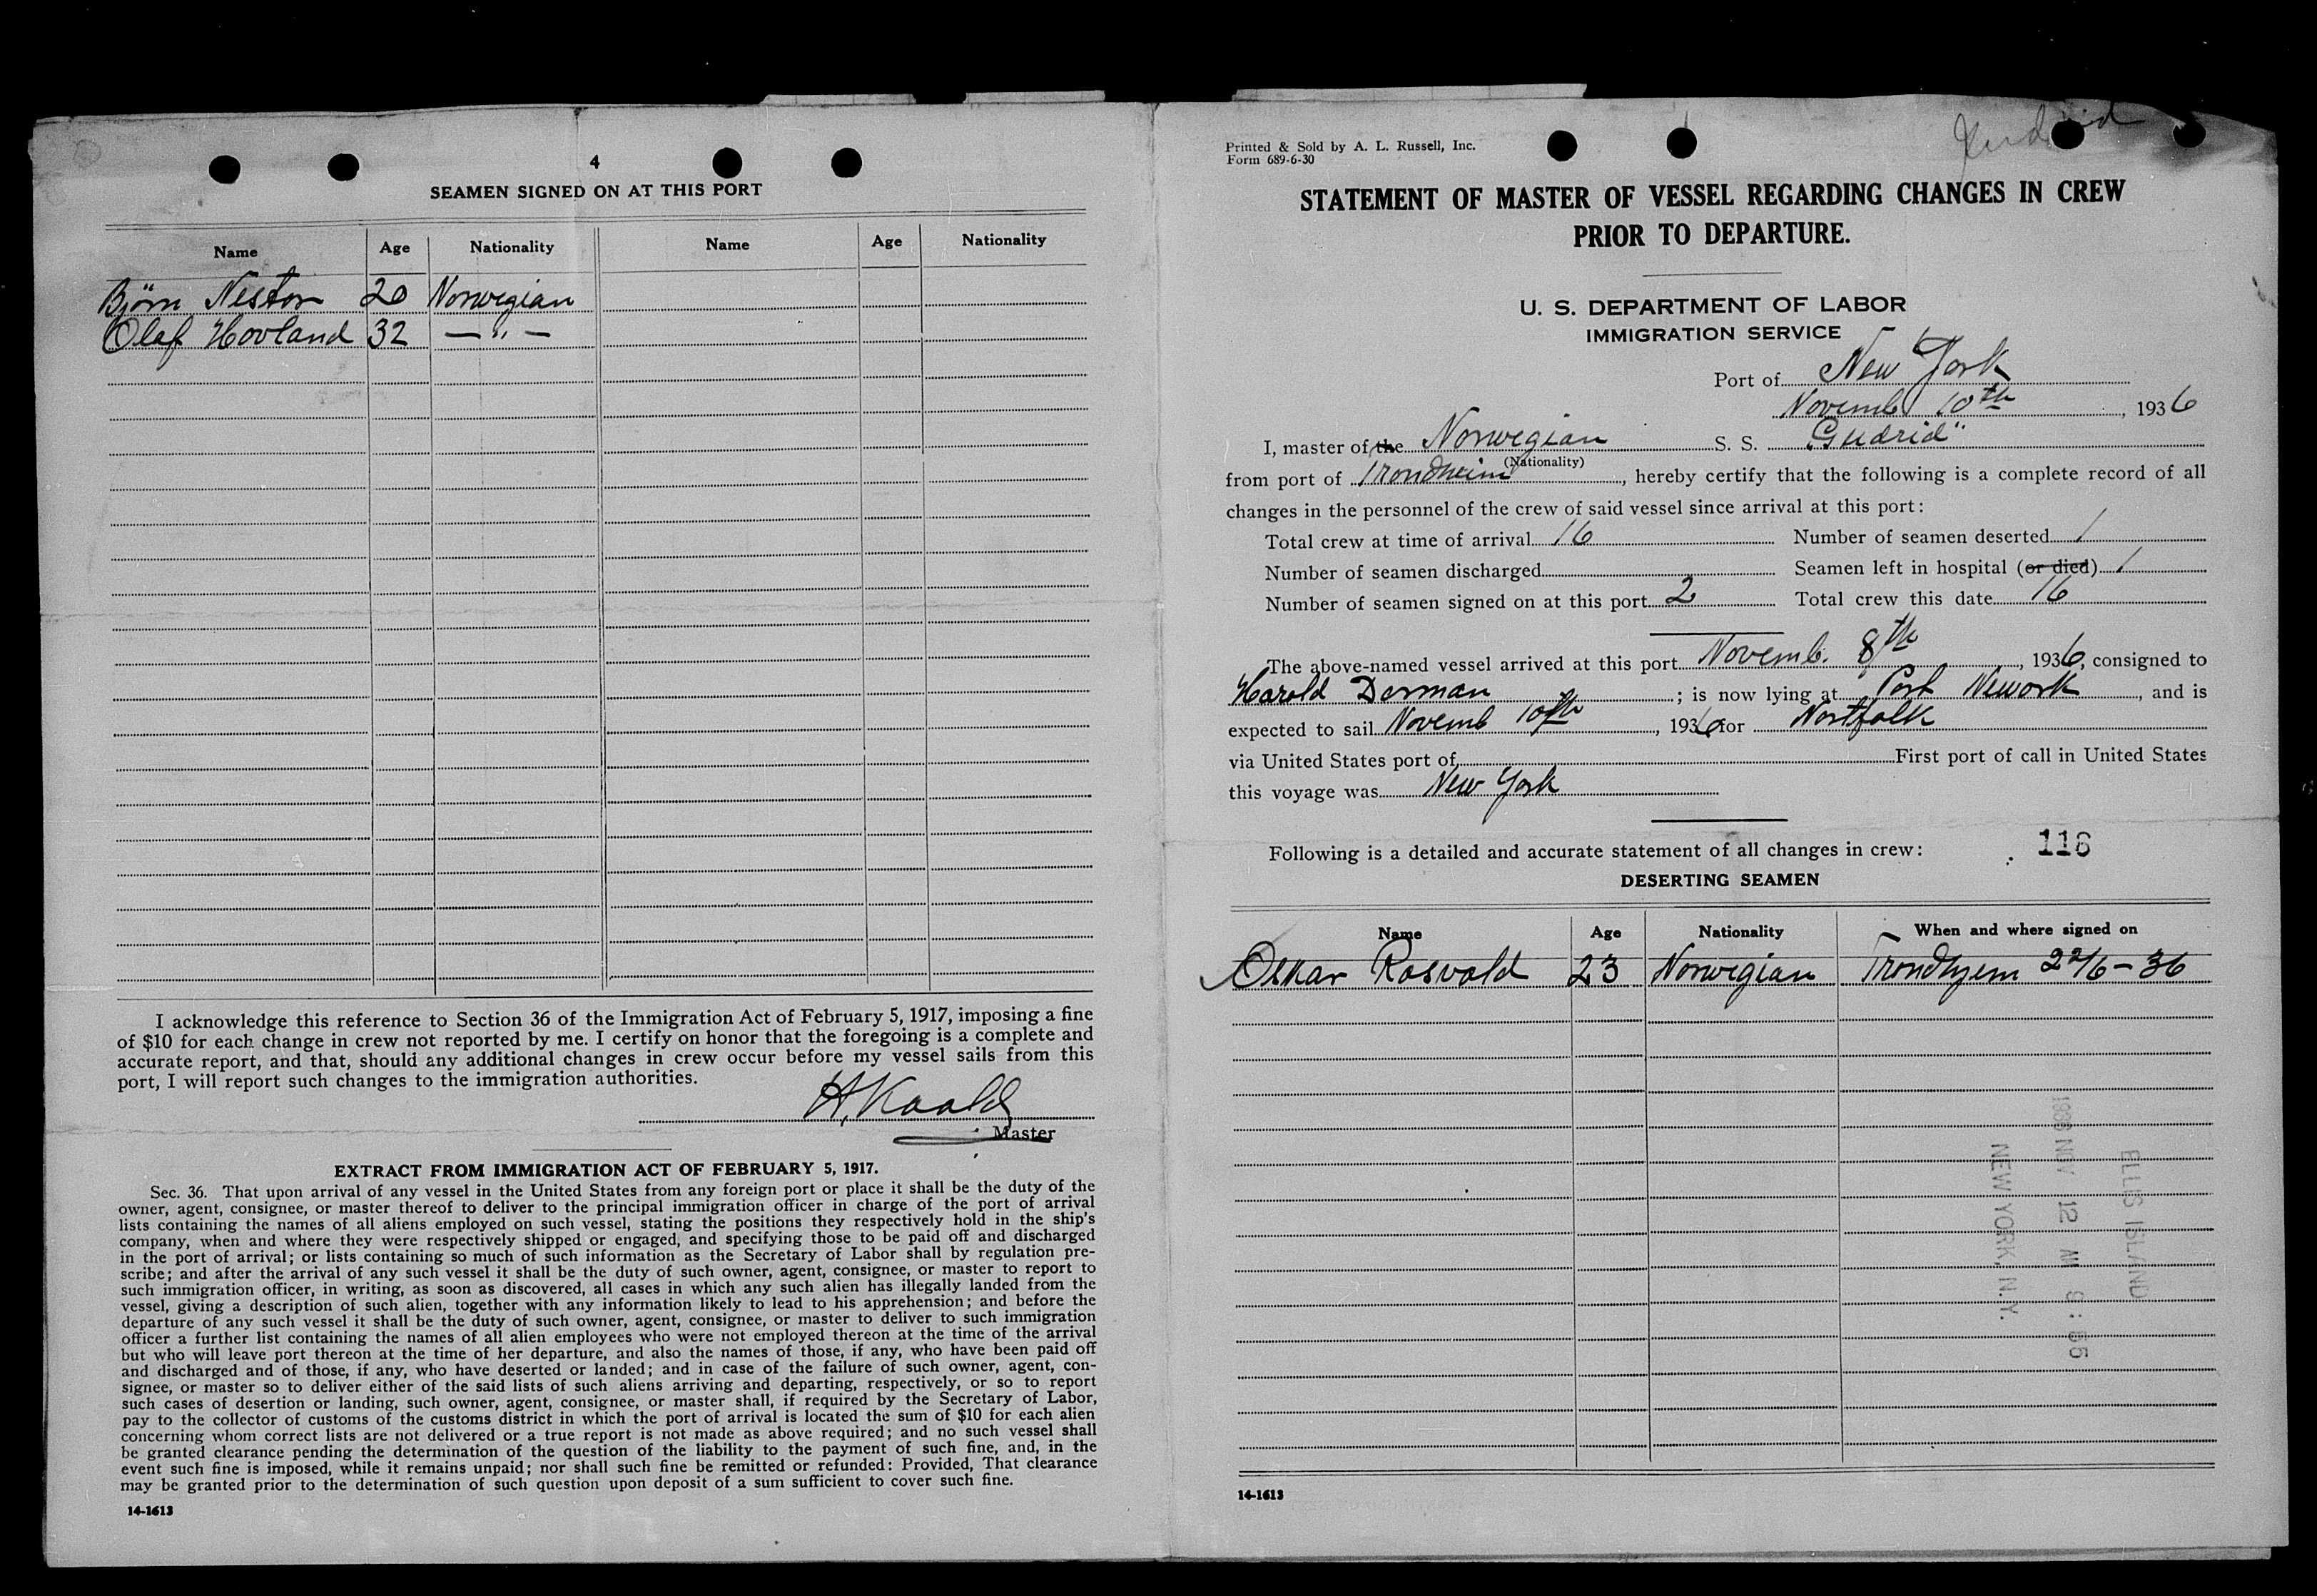 4
SEAMEN SIGNED ON AT THIS PORT
Name Age Nationality Name Age Nationality
Björn Nestor 20 Norwegian
Olaf Hovland 32 — " —
I acknowledge this reference to Section 36 of the Immigration Act of February 5, 1917, imposing a fine
of $10 for each change in crew not reported by me. I certify on honor that the foregoing is a complete and
accurate report, and that, should any additional changes in crew occur before my vessel sails from this
port, I will report such changes to the immigration authorities.
Master
EXTRACT FROM IMMIGRATION ACT OF FEBRUARY 5, 1917.
Sec. 36. That upon arrival of any vessel in the United States from any foreign port or place it shall be the duty of the
owner, agent, consignee, or master thereof to deliver to the principal immigration officer in charge of the port of arrival
lists containing the names of all aliens employed on such vessel, stating the positions they respectively hold in the ship's
company, when and where they were respectively shipped or engaged, and specifying those to be paid off and discharged
in the port of arrival; or lists containing so much of such information as the Secretary of Labor shall by regulation pre-
scribe; and after the arrival of any such vessel it shall be the duty of such owner, agent, consignee, or master to report to
such immigration officer, in writing, as soon as discovered, all cases in which any such alien has illegally landed from the
vessel, giving a description of such alien, together with any information likely to lead to his apprehension; and before the
departure of any such vessel it shall be the duty of such owner, agent, consignee, or master to deliver to such immigration
officer a further list containing the names of all alien employees who were not employed thereon at the time of the arrival
but who will leave port thereon at the time of her departure, and also the names of those, if any, who have been paid off
and discharged and of those, if any, who have deserted or landed; and in case of the failure of such owner, agent, con-
signee, or master so to deliver either of the said lists of such aliens arriving and departing, respectively, or so to report
such cases of desertion or landing, such owner, agent, consignee, or master shall, if required by the Secretary of Labor,
pay to the collector of customs of the customs district in which the port of arrival is located the sum of $10 for each alien
concerning whom correct lists are not delivered or a true report is not made as above required; and no such vessel shall
be granted clearance pending the determination of the question of the liability to the payment of such fine, and, in the
event such fine is imposed, while it remains unpaid; nor shall such fine be remitted or refunded: Provided, That clearance
may be granted prior to the determination of such question upon deposit of a sum sufficient to cover such fine.
14-1613
Gudrid
Printed & Sold by A. L. Russell, Inc.
Form 689-6-30
STATEMENT OF MASTER OF VESSEL REGARDING CHANGES IN CREW
PRIOR TO DEPARTURE.
U. S. DEPARTMENT OF LABOR
IMMIGRATION SERVICE
Port of New York
Novemb 10th, 1936
I, master of the Norwegian S. S. "Gudrid"
(Nationality)
from port of Trondheim, hereby certify that the following is a complete record of all
changes in the personnel of the crew of said vessel since arrival at this port:
Total crew at time of arrival 16 Number of seamen deserted 1
Number of seamen discharged Seamen left in hospital (or died) 1
Number of seamen signed on at this port 2 Total crew this date 16
The above-named vessel arrived at this port Novemb. 8th, 1936, consigned to
Harold Dorman; is now lying at Port Newark, and is
expected to sail Novemb 10th, 1936 for Nortfolk
via United States port of First port of call in United States
this voyage was New York
Following is a detailed and accurate statement of all changes in crew:
116
DESERTING SEAMEN
Name Age Nationality When and where signed on
Oskar Rosvold 23 Norwegian Trondhjem 22/6-36
ELLIS ISLAND
1936 NOV 12 AM 9:55
NEW YORK, N.Y.
14-1613